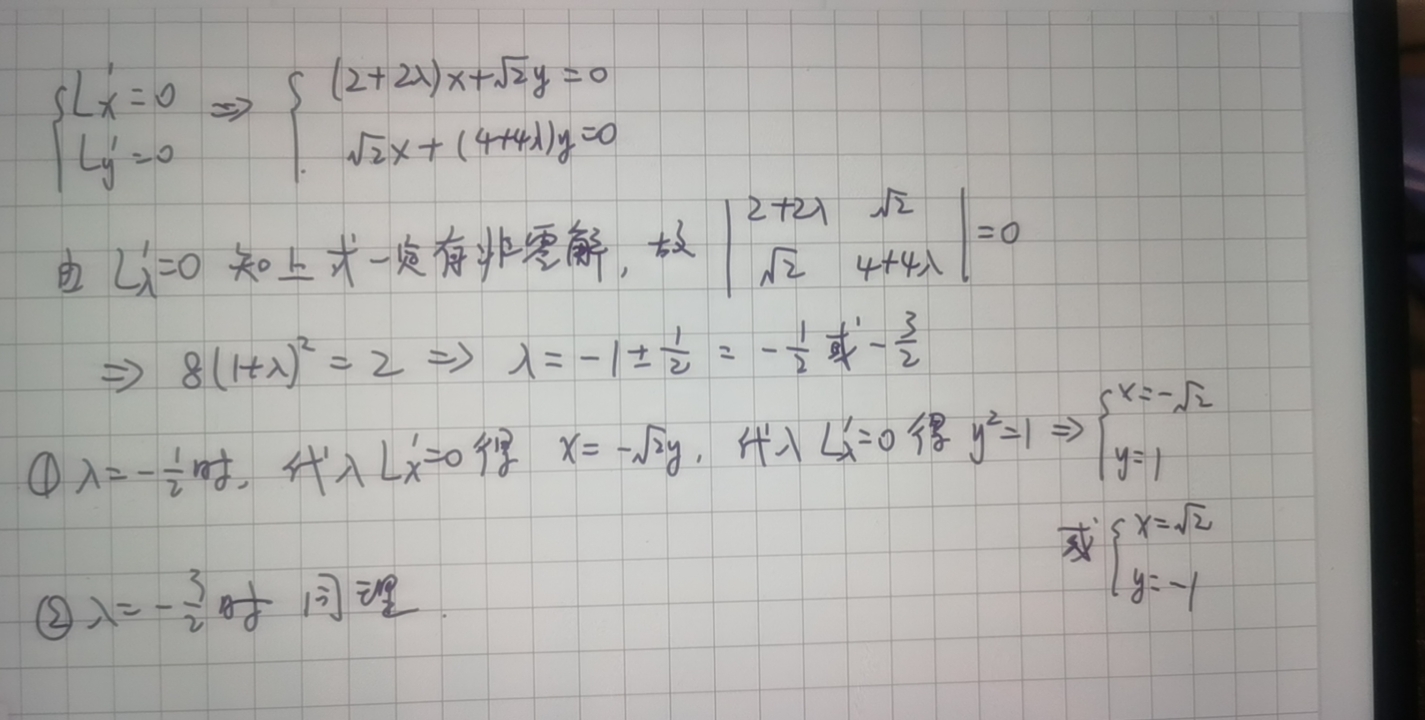 {L'x=0 L'y=0 ⇒ {(2+2λ)x+√2y=0
√2x+(4+4λ)y=0
由 L'λ=0 知上式一定有非零解，故 |2+2λ √2 √2 4+4λ|=0
⇒ 8(1+λ)²=2 ⇒ λ=-1±1/2=-1/2或-3/2
①λ=-1/2时，代入L'x=0得 x=-√2y，代入L'λ=0得 y²=1 ⇒ {x=-√2 y=1
或{x=√2 y=-1
②λ=-3/2时 同理.